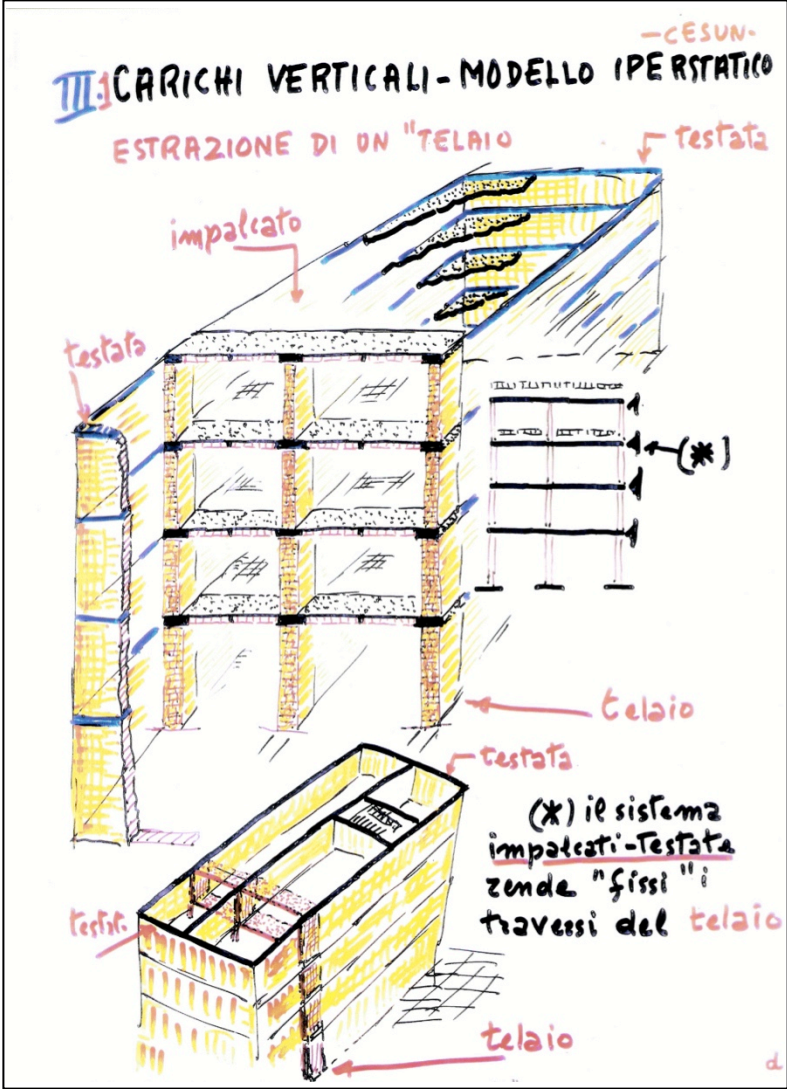 -CESUN-
III.1 CARICHI VERTICALI-MODELLO IPERSTATICO
ESTRAZIONE DI UN "TELAIO
testata
impalcato
testata
(*)
telaio
testata
(*) il sistema
impalcati-Testate
rende "fissi" i
traversi del telaio
testat.
telaio
d